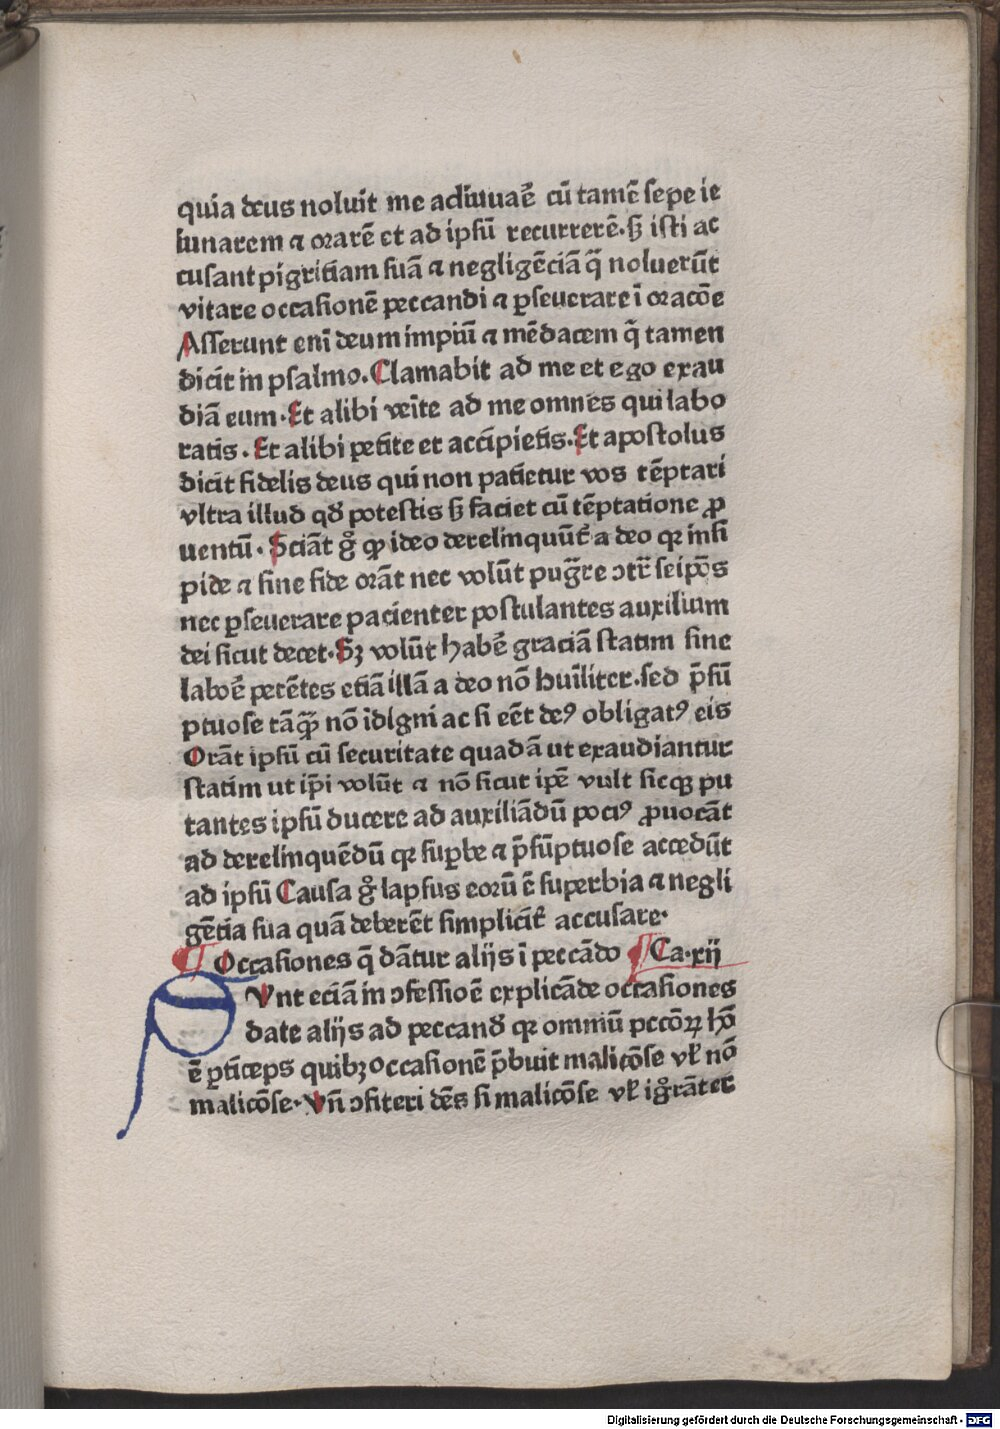 quia deus noluit me adiuuaꝛ̄ cū tamē sepe ie
iunarem ⁊ oꝛarē et ad ipsū recurrerē. sꝫ isti ac
cusant pigritiam suā ⁊ negligēciā q̄ noluerūt
vitare occasionē peccandi ⁊ ꝑseuerare ī oꝛacōe
Asserunt enī deum impiū ⁊ mēdacem q̄ tamen
dicit in psalmo. Clamabit ad me et ego exau
diā eum. Et alibi veīte ad me omnes qui labo
ratis. Et alibi petite et accipietis. Et apostolus
dicit fidelis deus qui non patietur vos tēptari
vltra illud qđ potestis sꝫ faciet cū tēptatione ꝓ
uentū. Sciāt gͦ ꝙ ideo derelinquūt᷑ a deo qꝛ insi
pide ⁊ sine fide oꝛāt nec volūt pugᷓre ↄtᷓ seipōs
nec ꝑseuerare pacienter postulantes auxilium
dei sicut decet. Sꝫ volūt habē graciā statim sine
laboꝛē petētes etiā illā a deo nō huīliter. sed p̄sū
ptuose tāqᷓꝫ nō īdigni ac si eēt deꝰ obligatꝰ eis
Oꝛāt ipsū cū securitate quadā ut exaudiantur
statim ut ip̄i volūt ⁊ nō sicut ip̄e vult sicqꝫ pu
tantes ipsū ducere ad auxiliādū pociꝰ ꝓuocāt
ad derelinquēdū qꝛ suꝑbe ⁊ p̄sūptuose accedūt
ad ipsū Causa gͦ lapsus eoꝛū ē superbia ⁊ negli
gētia sua quā deberēt simplicit᷑ accusare.
¶ Occasiones q̄ dātur alijs ī peccādo ¶ Ca. xij
SVnt eciā in ↄfessioē explicāde occasiones
date alijs ad peccand̄ qꝛ omniū pccōꝝ hō
ē ꝑticeps quibꝫ occasionē p̄buit malicōse vł nō
malicōse. Vñ ↄfiteri dēs si malicōse vł igͦrāter
Digitalisierung gefördert durch die Deutsche Forschungsgemeinschaft - DFG